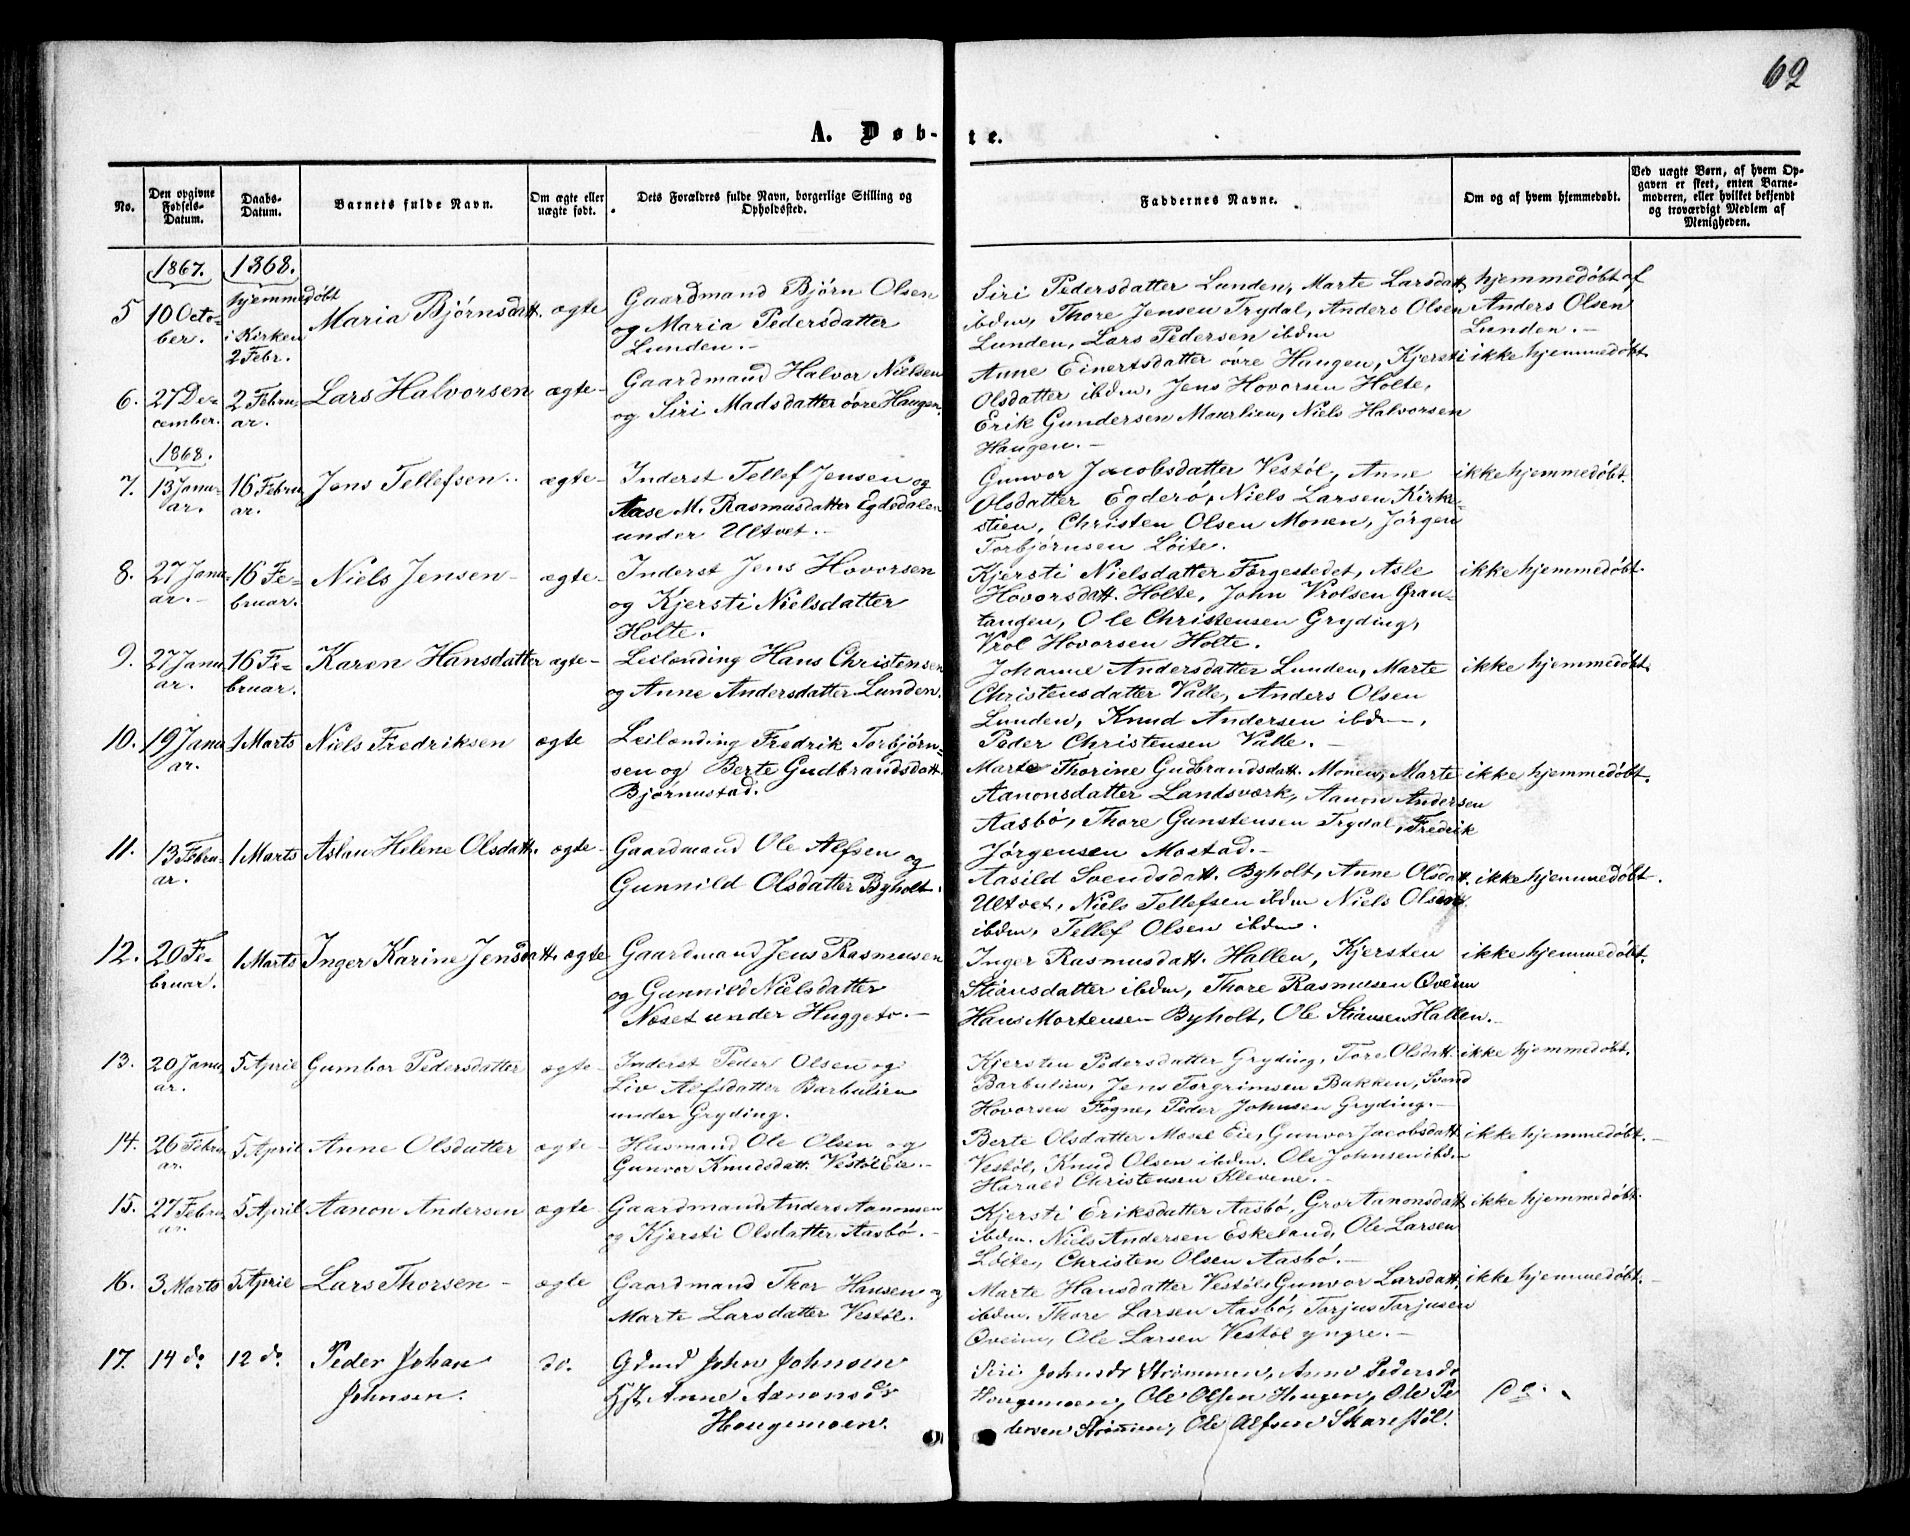 62
A. Døb-te.
No.
Den opgivne Fødsels-Datum.
Daabs-Datum.
Barnets fulde Navn.
Om ægte eller uægte født.
Dets Forældres fulde Navn, borgerlige Stilling og Opholdssted.
Faddernes Navne.
Om og af hvem hjemmedøbt.
Ved uægte Børn, af hvem Opgaven er skeet, enten Barnemoderen, eller hvilket bekjendt og troværdigt Medlem af Menigheden.
1867. 1868.
5 10 Octo-
ber.
hjemmedøbt
i Kirken
2 Febr.
Maria Bjørnsdatt. ægte
Gaardmand Bjørn Olsen
og Maria Pedersdatter
Lunden.-
Siri Pedersdatter Lunden, Marte Larsdatt.
ibdm, Thore Jensen Trydal, Anders Olsen
Lunden, Lars Pedersen ibdm
hjemmedøbt af
Anders Olsen
Lunden.-
6. 27 De-
cember.
2 Febru-
ar.
Lars Halvorsen ægte-
Gaardmand Halvor Nielsen
og Siri Madsdatter øvre Haugen.
Anne Einertsdatter øvre Haugen, Kjersti
Olsdatter ibdm, Jens Hovorsen Holte,
Erik Gundersen Maurlien, Niels Halvorsen
Haugen.-
ikke hjemmedøbt
1868.
7. 13 Janu-
ar.
16 Febru
ar.
Jens Tellefsen.. ægte-
Inderst Tellef Jensen og
Aase M. Rasmusdatter Egdedalen
under Ultvet.-
Gunvor Jacobsdatter Vestøl, Anne
Olsdatter Egderø, Niels Larsen Kirk-
stien, Christen Olsen Monen, Jørgen
Torbjørnsen Løite.
ikke hjemmedøbt.
8. 27 Janu-
ar.-
16 Fe-
bruar.
Niels Jensen- ægte-
Inderst Jens Hovorsen
og Kjersti Nielsdatter
Holte.
Kjersti Nielsdatter Førgestedet, Asle
Hovorsdatt. Holte, John Vrolsen Gran-
tangen, Ole Christensen Gryding,
Vrol Hovorsen Holte.
ikke hjemmedøbt.
9. 27 Janu
ar.
16 Fe-
bruar.
Karen Hansdatter ægte-
Leilænding Hans Christensen
og Anne Andersdatter Lunden.
Johanne Andersdatter Lunden, Marte
Christensdatter Valle, Anders Olsen
Lunden, Knud Andersen ibdm,
Peder Christensen Valle.-
ikke hjemmedøbt.
10. 19 Janu
ar.
1 Marts
Niels Fredriksen ægte
Leilænding Fredrik Torbjørn-
sen og Berte Gudbrandsdatt.
Bjørnustad.
Marte Thorine Gudbrandsdatt. Monen, Marte
Aanonsdatter Landsværk, Aanon Andersen
Aasbø, Thore Gunstensen Trydal, Fredrik
Jørgensen Mostad.-
ikke hjemmedøbt.
11. 13 Febru-
ar.
1 Marts
Aslau Helene Olsdatt. ægte-
Gaardmand Ole Alfsen og
Gunnild Olsdatter Byholt.
Aasild Svendsdatt. Byholt, Anne Olsdatt.
Ultvet, Niels Tellefsen ibdm Niels Olsen
ibdm, Tellef Olsen ibdm.
ikke hjemmedøbt.
12. 20 Fe-
bruar.
1 Marts
Inger Karine Jensdatt. ægte
Gaardmand Jens Rasmusen
og Gunnild Nielsdatter
Næset under Huggeto.-
Inger Rasmusdatt. Hallen, Kjersten
Stiansdatter ibdm, Thore Rasmusen Oveim
Hans Mortensen Byholt, Ole Stiansen Hallen.-
ikke hjemmedøbt.
13. 20 Janu
ar.
5 April
Gumbor Pedersdatter ægte-
Inderst Peder Olsen og
Liv Alfsdatter Barbulien
under Gryding.
Kjersten Pedersdatter Gryding, Tore Olsdatt.
Barbulien, Jens Torgrimsen Bakken, Svend
Hovorsen Fogne, Peder Johnsen Gryding.-
ikke hjemmedøbt.
14. 26 Febru
ar.
5 April
Anne Olsdatter ægte-
Husmand Ole Olsen og
Gunvor Knudsdatt. Vestøl Eie.-
Berte Olsdatter Mosel Eie, Gunvor Jacobsdatt
Vestøl, Knud Olsen ibdm. Ole Johnsen ibdm
Harald Christensen Klevene.
ikke hjemmedøbt.-
15. 27 Febru
ar
5 April
Aanon Andersen ægte-
Gaardmand Anders Aanonsen
og Kjersti Olsdatter Aasbø.-
Kjersti Eriksdatter Aasbø, Gro Aanonsdatt
ibdm. Niels Andersen Eskeland, Ole Larsen
Løite, Christen Olsen Aasbø.-
ikke hjemmedøbt.
16. 3 Marts 5 April
Lars Thorsen- ægte
Gaardmand Thor Hansen og
Marte Larsdatter Vestøl.
Marte Hansdatter Vestøl, Gunvor Larsdatt.
ibdm. Thore Larsen Aasbø, Torjus Torjusen
Oveim, Ole Larsen Vestøl yngre.-
ikke hjemmedøbt.-
17. 14 do 12 do
Peder Johan
Johnsen.
do.
Gdmd John Johnsen
Hst. Anne Aanonsdr
Hougemoen.
Siri Johnsdr Strømmen, Anne Pedersdr
Hougemoen, Ole Olsen Hougen, Ole Pe
dersen Strømmen, Ole Alfsen Skarestøl.
do.